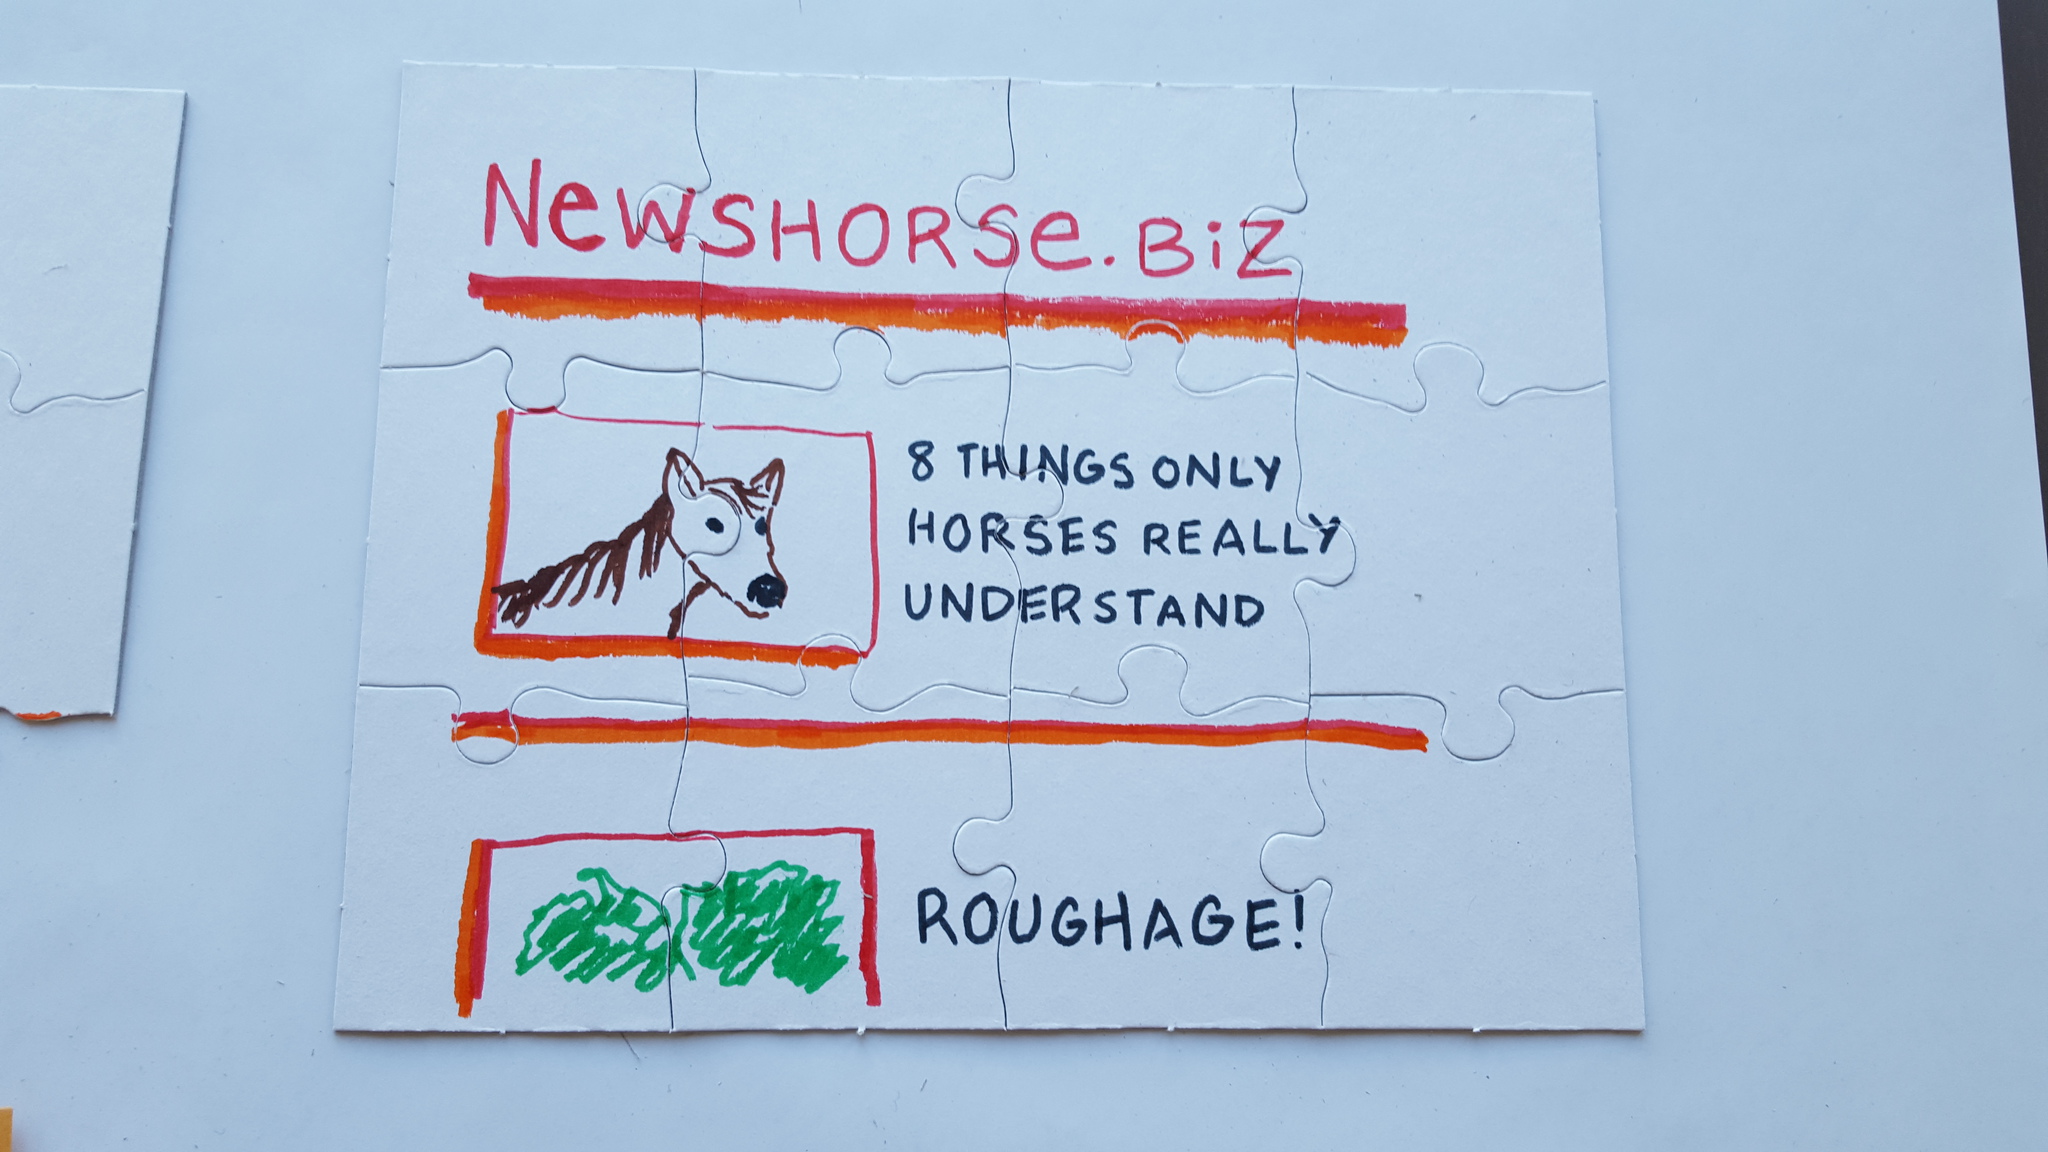 NewSHORSe.BiZ
8 THINGS ONLY
HORSES REALLY
UNDERSTAND
ROUGHAGE!